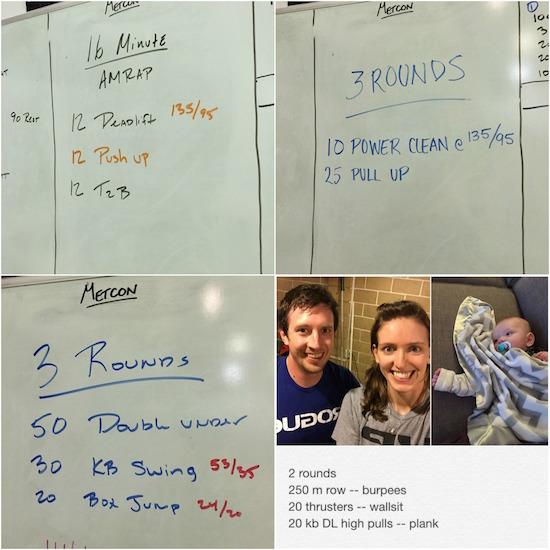 METCON
16 Minute
AMRAP
90 Rest
12 Deadlift 135/95
12 Push up
12 T2B
METCON
3 ROUNDS
10 POWER CLEAN @ 135/95
25 PULL UP
1
10
3
20
20
10
METCON
3 Rounds
50 Double under
30 KB Swing 53/35
20 Box Jump 24/20
ROGUE
2 rounds
250 m row -- burpees
20 thrusters -- wallsit
20 kb DL high pulls -- plank